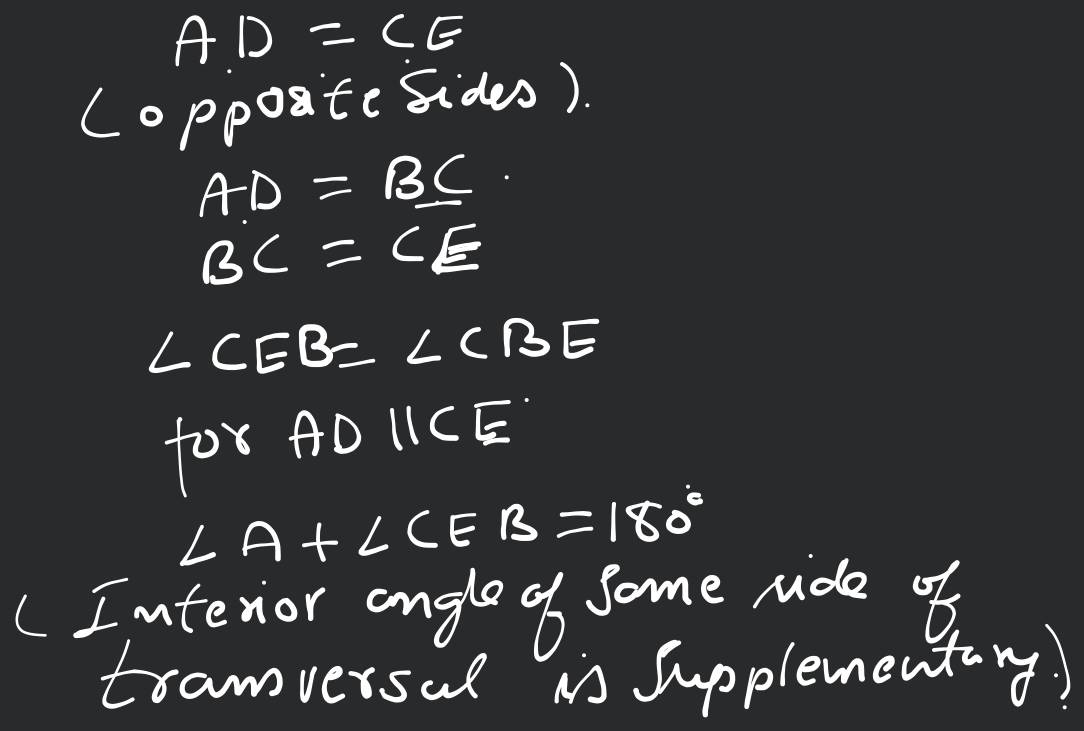 AD = CE
(opposite Sides).
AD = BC.
BC = CE
∠CEB = ∠CBE
for AD || CE
∠A + ∠CEB = 180°
(Interior angle of Same side of
transversal is Supplementary.)